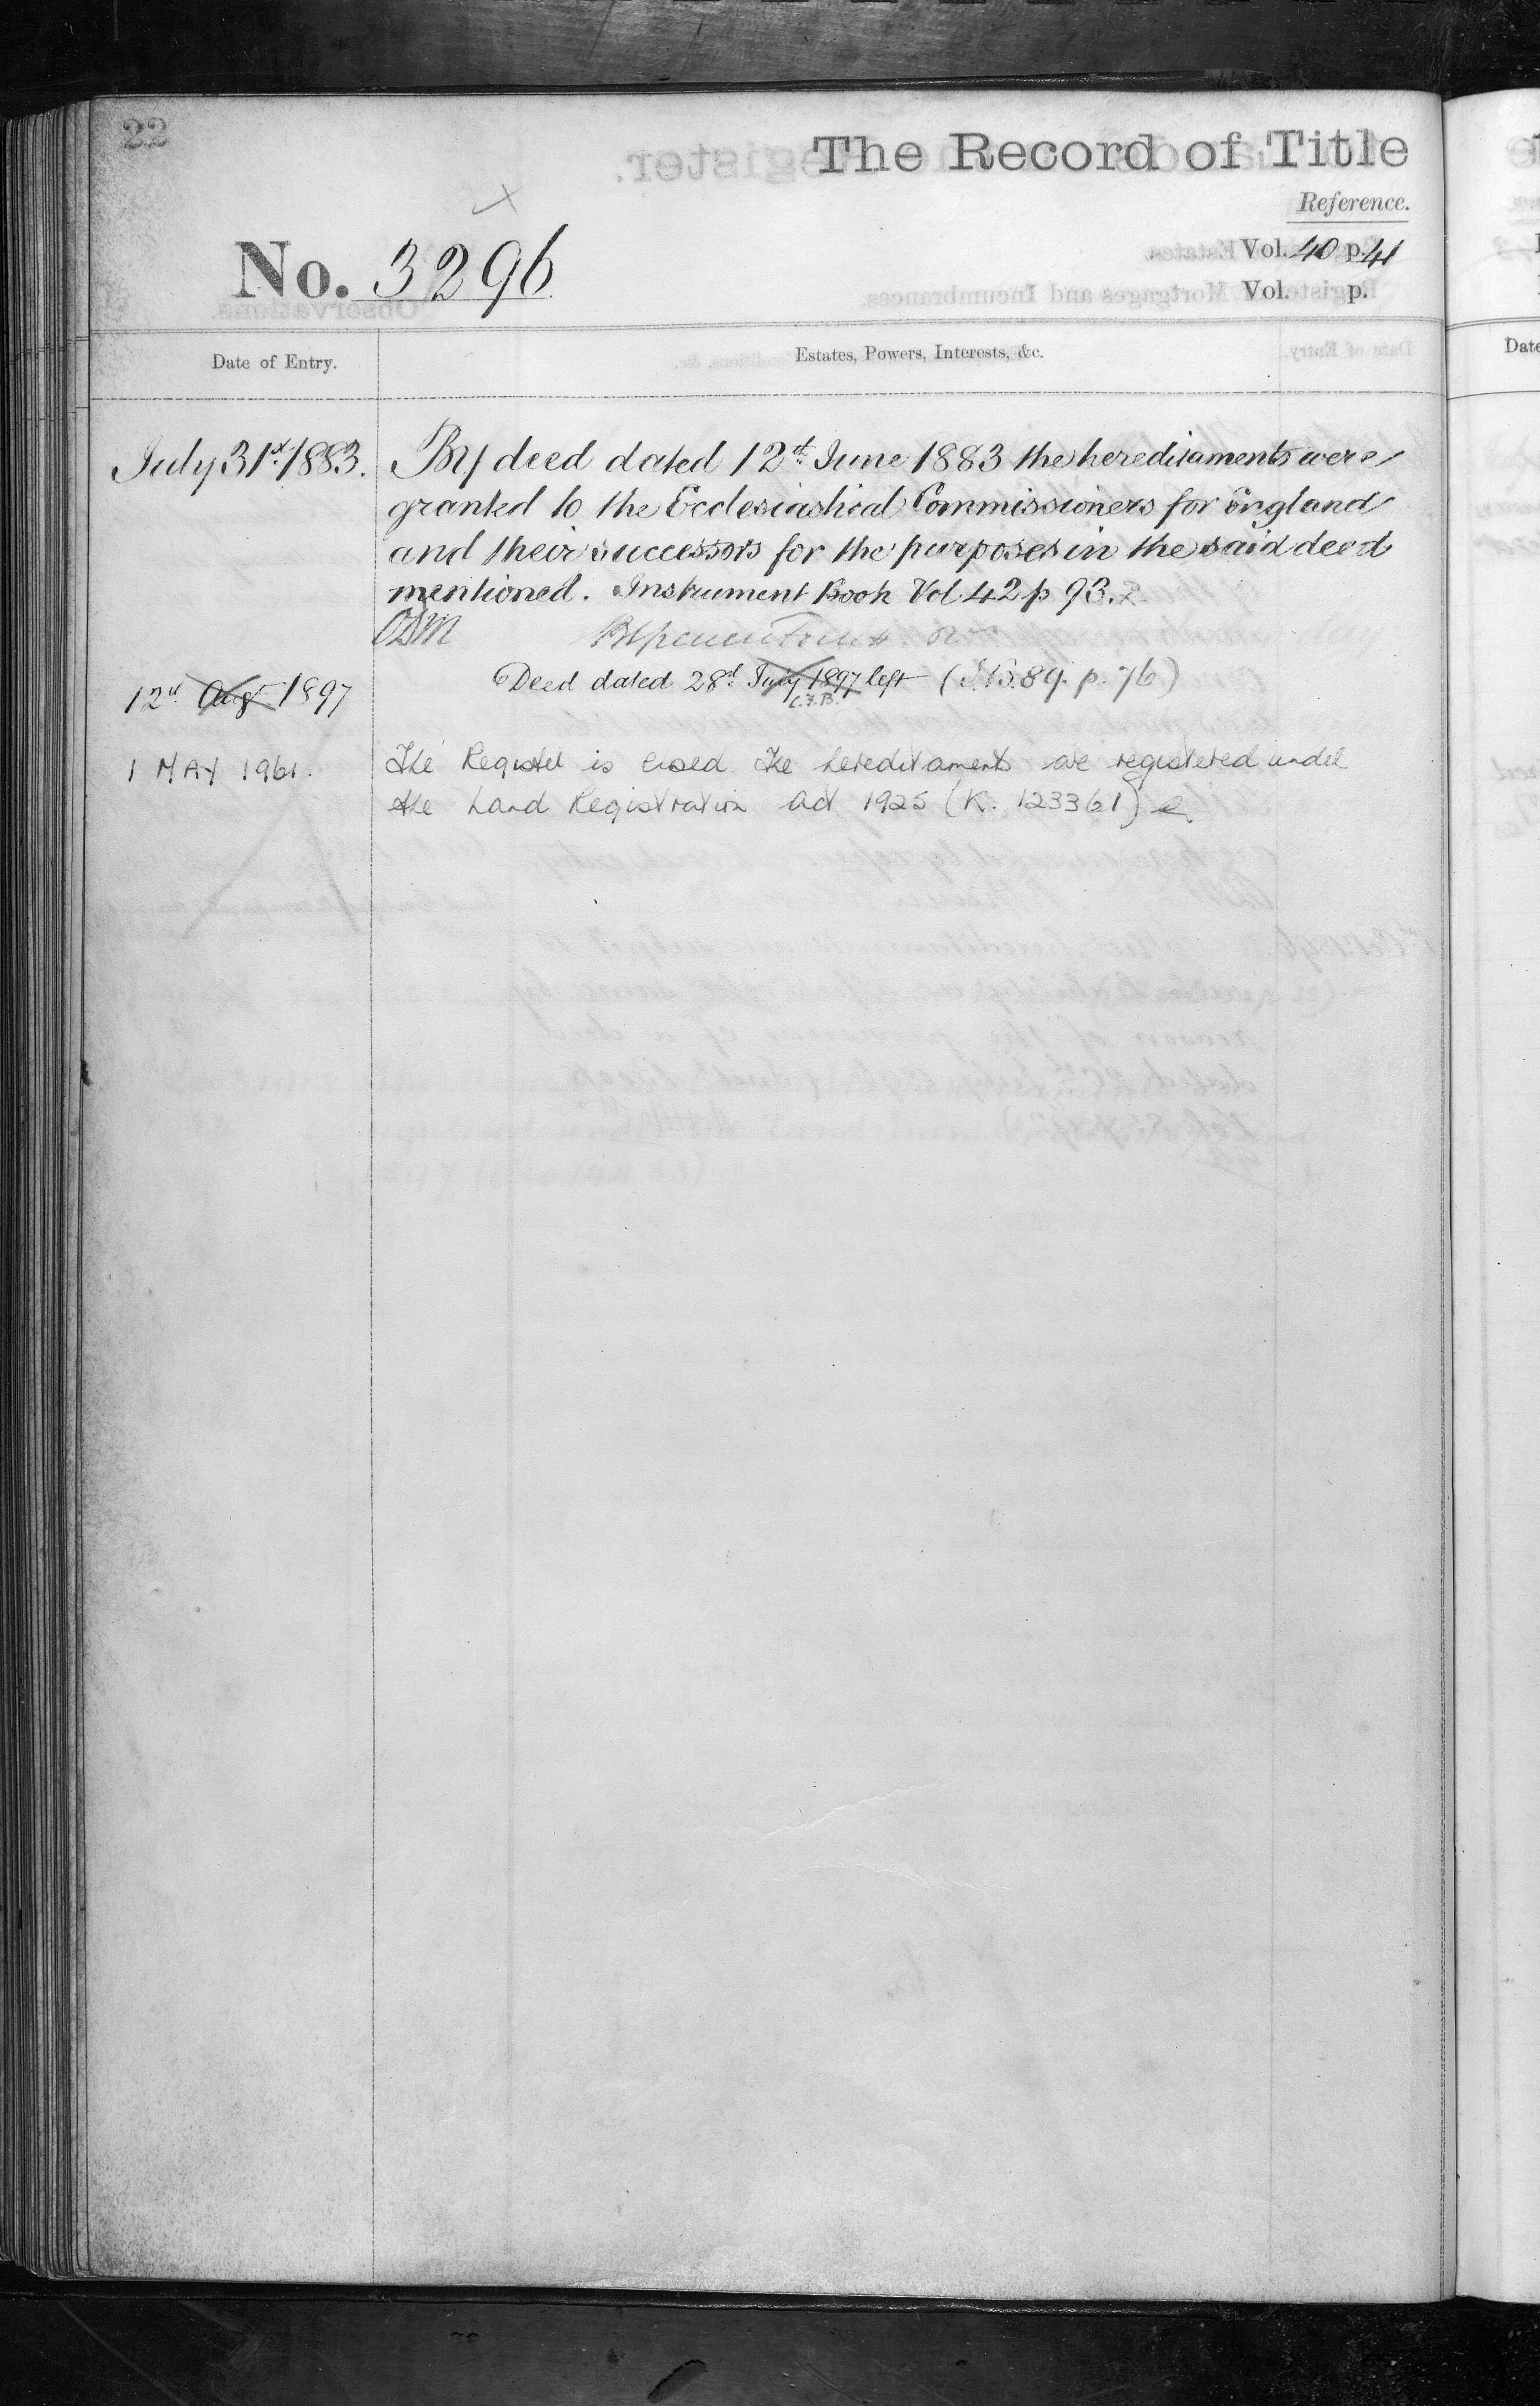 22
The Record of Title
Reference.
No. 3296
Vol. 40 p. 41
Vol. p.
Date of Entry.
Estates, Powers, Interests, &c.
July 31st 1883. By deed dated 12th June 1883 the hereditaments were
granted to the Ecclesiastical Commissioners for England
and their successors for the purposes in the said deed
mentioned. Instrument Book Vol 42 p 93.
12th Aug 1897 Deed dated 28th July 1897 left (I.B. 89. p. 76)
C.F.B.
1 MAY 1961. The Register is closed. The hereditaments are registered under
the Land Registration Act 1925 (K. 123361)
Date